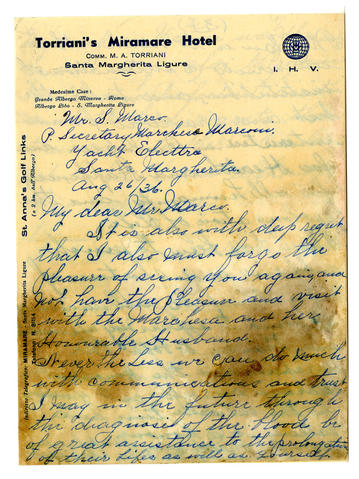 Torriani's Miramare Hotel
COMM. M. A. TORRIANI
Santa Margherita Ligure
I. H. V.
Medesime Case:
Grande Albergo Minerva - Roma
Albergo Lido - S. Margherita Ligure
St Anna's Golf Links
(a 2 km. dall'Albergo)
Indirizzo Telegrafico: MIRAMARE - Santa Margherita Ligure
Telefono: N.
Mr. S. Marco.
P. Secretary Marchese Marconi.
Yacht Electtra
Santa Margherita.
Aug 26/36.
My dear Mr. Marco.
It is also with deep regret
that I also must forgo the
pleasure of seeing you again, and
not have the pleasure and visit
with the Marchesa and her
Honourable Husband.
Never the Less we can do much
with communications and trust
I may in the future through
the diagnose of the blood be
of great assistance to the prolongation
of their lifes as well as yourself